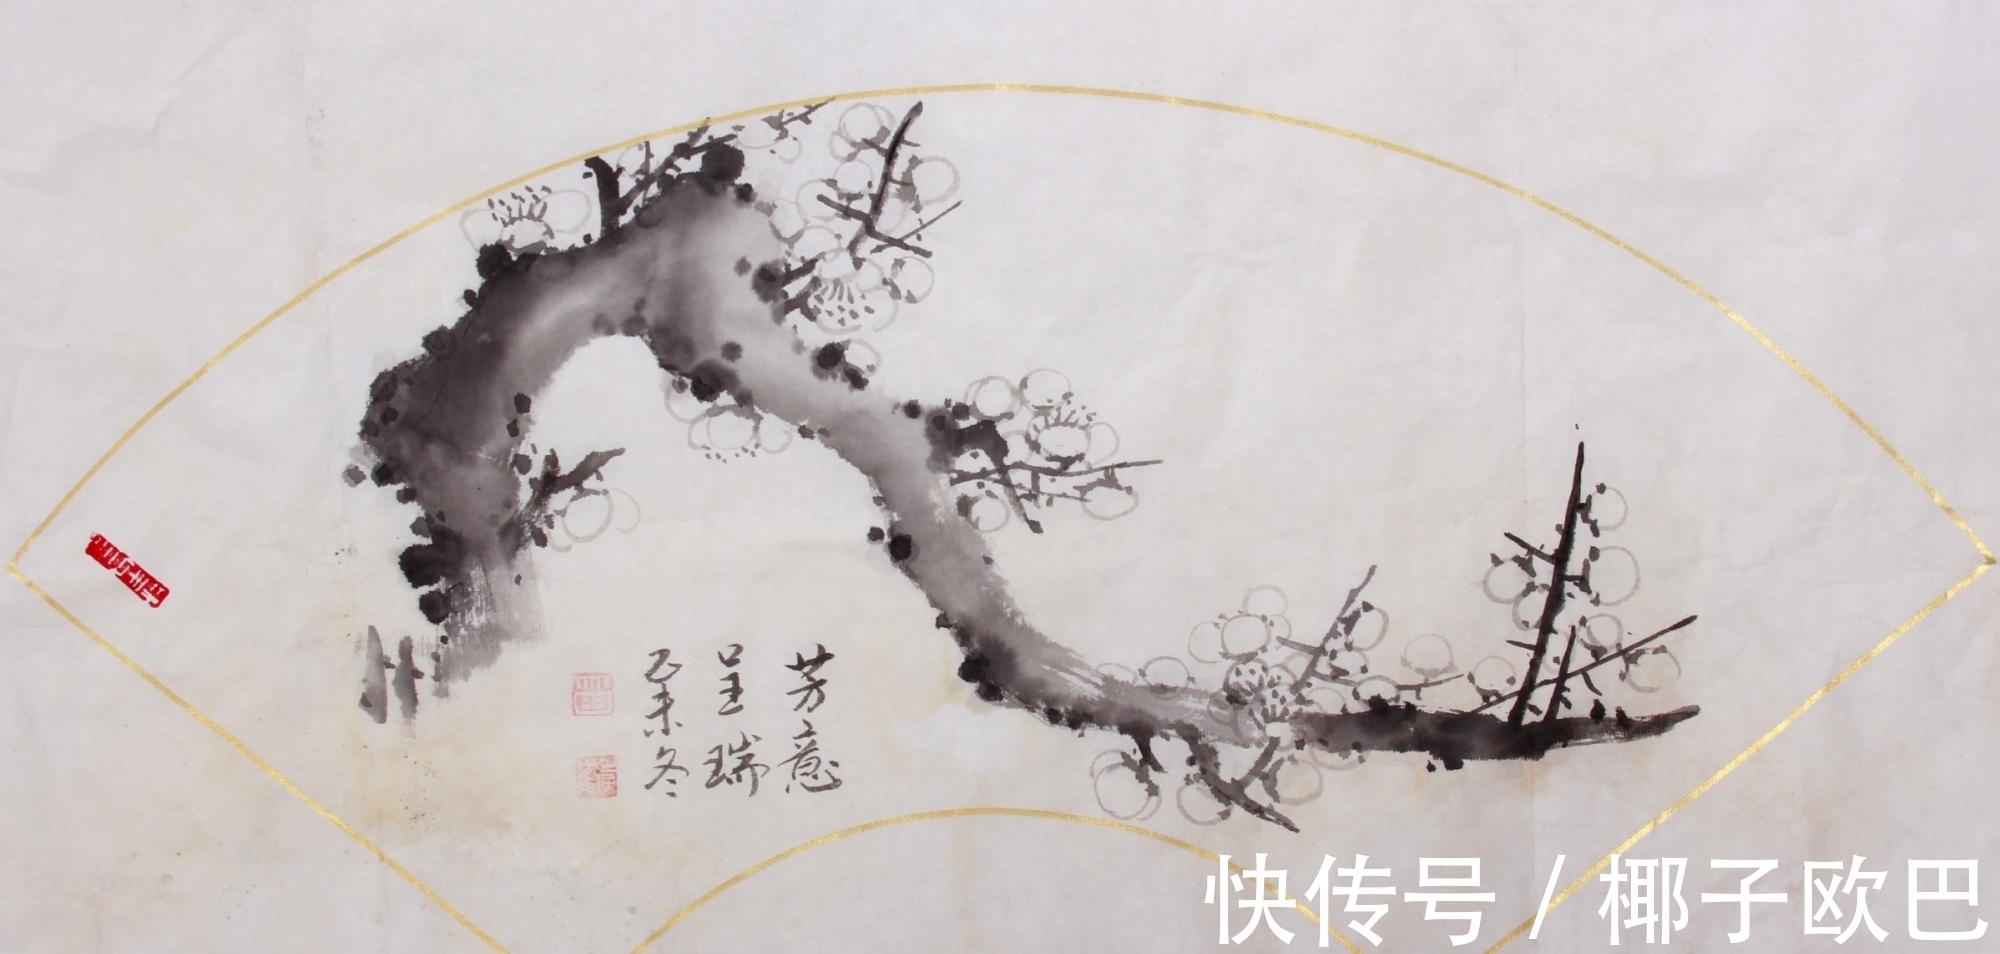 芳意
呈瑞
乙未冬
快传号 / 椰子欧巴